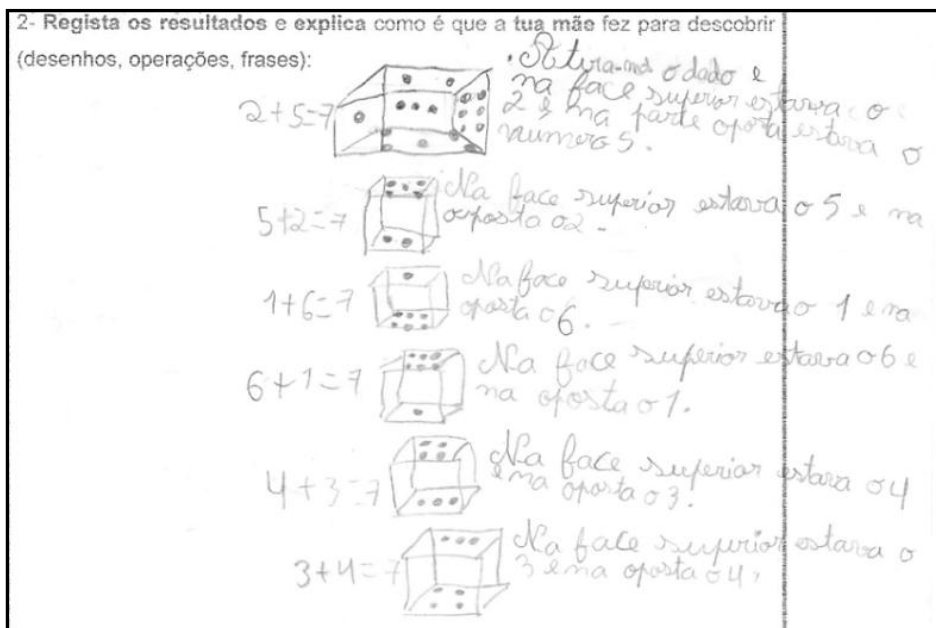 2- Regista os resultados e explica como é que a tua mãe fez para descobrir
(desenhos, operações, frases):
. Atira-mos o dado e
2+5=7 na face superior estava o
2 e na parte oposta estava o
numero 5.
Na face superior estava o 5 e na
5+2=7 oposta o 2.
Na face superior estava o 1 e na
1+6=7 oposta o 6.
Na face superior estava o 6 e
6+1=7 na oposta o 1.
Na face superior estava o 4
4+3=7 e na oposta o 3.
Na face superior estava o
3+4=7 3 e na oposta o 4,